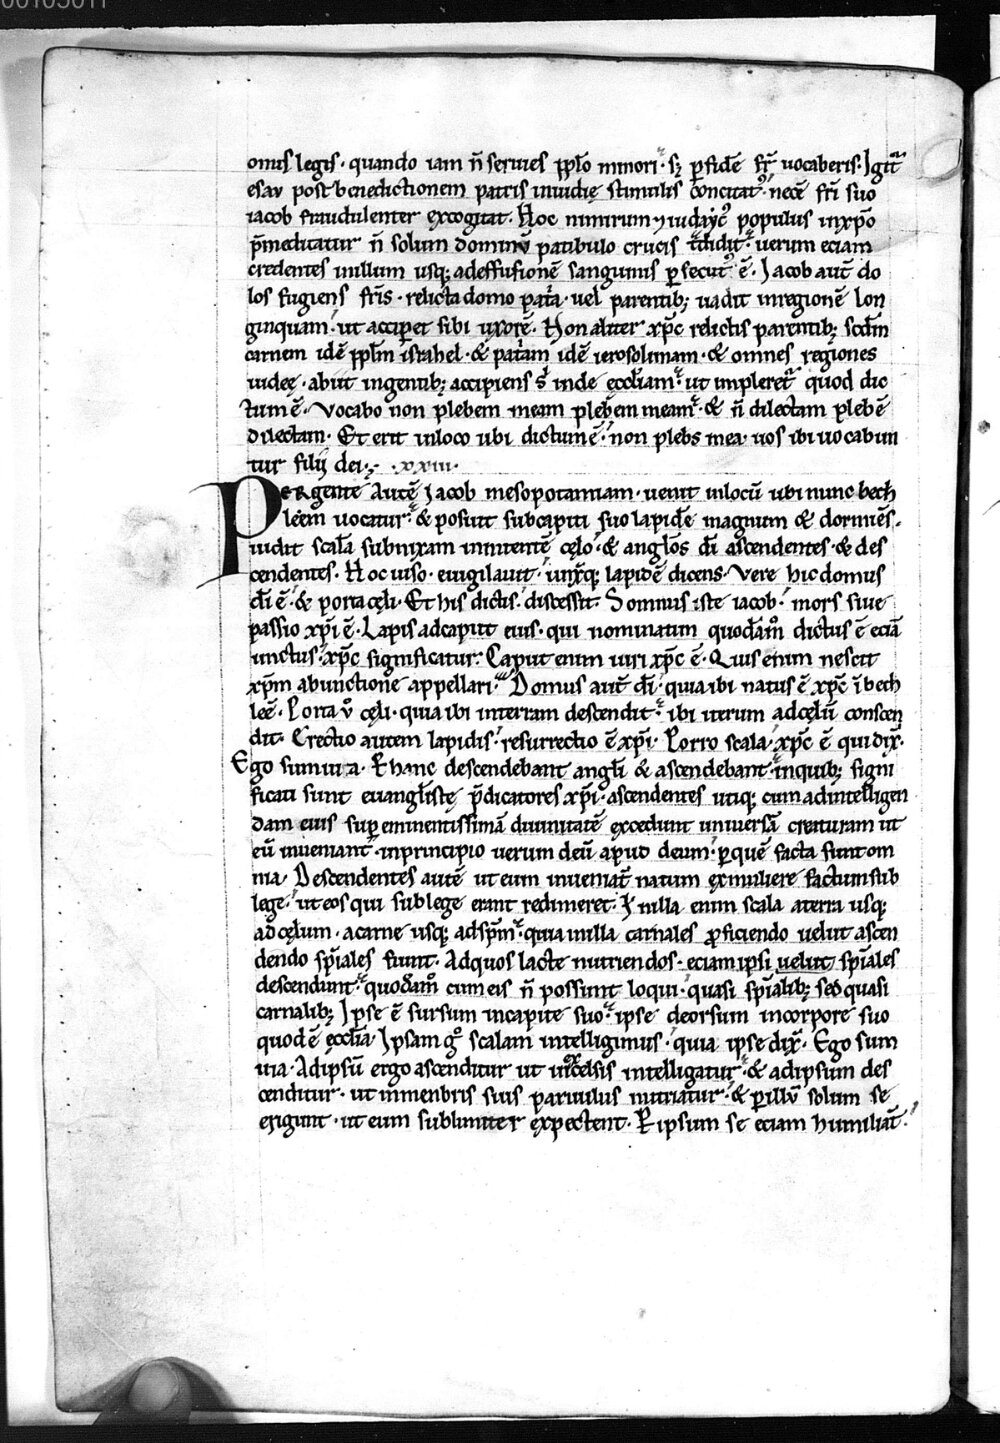 onus legis · quando iam n̄ seruies pp̄lo minori · sꝫ ꝑfidē fr̄ uocaberis. Igit᷑
esau post benedictionem patris inuidię stimulis concitatꝰ · necē fr̄i suo
iacob fraudulenter excogitat. Hoc nimirum ⁊ iudaycꝰ populus in xp̄o
p̄meditatur n̄ solum dominū patibulo crucis t̄didit · uerum eciam
credentes in illum usqꝫ ad effusionē sanguinis ꝑsecutꝰ ē · Iacob aut̄ do
los fugiens fr̄is · relicta domo pat̄a · uel parentibꝫ uadit in regionē lon
ginquam · ut acciperet sibi uxorē. Non aliter xp̄c relictis parentibꝫ scd̄m
carnem idē pp̄lm israhel · & pat̄am idē ierosolimam · & omnes regiones
iudeę · abiit in gentibꝫ accipiens s̄ inde ęccl̄iam · ut impleret᷑ quod dic
tum ē · Vocabo non plebem meam plebem meam · & n̄ dilectam plebē
dilectam · Et erit in loco ubi dictum ē · non plebs mea uos ibi uocabun
tur filij dei · xxiii ·
Pergente autē Iacob mesopotamiam · uenit in locū ubi nunc bech
leēm uocatur · & posuit sub capiti suo lapidē magnum & dormiēs ·
uidit scalā subnixam innitentē cęlo · & angl̄os dī ascendentes · & des
cendentes. Hoc uiso · euigilauit · unx̄qꝫ lapidē dicens · Vere hic domus
dī ē · & porta cęli · Et his dictis · discessit · Somnus iste iacob · mors siue
passio xp̄i ē · Lapis ad caput eius · qui nominatim quodam̄o dictus ē eciā
unctus · xp̄c significatur · Caput enim uiri xp̄c ē · Quis enim nescit
xp̄m ab unctione appellari · Domus aut̄ dī · quia ibi natus ē xp̄c ī bech
leē · Porta v̊ cęli · quia ibi in terram descendit · ibi iterum ad cęlū conscen
dit · Erectio autem lapidis · resurrectio ē xp̄i · Porro scala · xp̄c ē qui dix̄ ·
Ego sum uia. P hanc descendebant angl̄i & ascendebant · in quibꝫ signi
ficati sunt euangl̄istę p̄dicatores xp̄i · ascendentes utiqꝫ cum ad intelligen
dam eius suꝑ eminentissimā diuinitatē excedunt uniuersā creaturam ut
eū inueniant · in principio uerum deū apud deum · ꝑ quē facta sunt om
nia · Descendentes autē ut eum inueniāt natum ex muliere factum sub
lege · ut eos qui sub lege erant redimeret · In illa enim scala a terra usqꝫ
ad cęlum · a carne usqꝫ ad sp̄m · quia in illa carnales ꝓficiendo uelut ascen
dendo sp̄iales fiunt · Ad quos lacte nutriendos · eciam ipsi uelut sp̄iales
descendunt · quodam̊ cum eis n̄ possunt loqui · quasi sp̄ialibꝫ sed quasi
carnalibꝫ Ipse ē sursum in capite suo · ipse deorsum in corpore suo
quod ē ęccl̄ia · Ipsam gͦ scalam intelligimus · quia ipse dix̄ · Ego sum
uia · Ad ipsū ergo ascenditur ut in excelsis intelligatur · & ad ipsum des
cenditur · ut in menbris suis paruulus nutriatur · & ꝑ illū solum se
erigunt · ut eum sublimiter expectent · P ipsum se eciam humiliāt ·